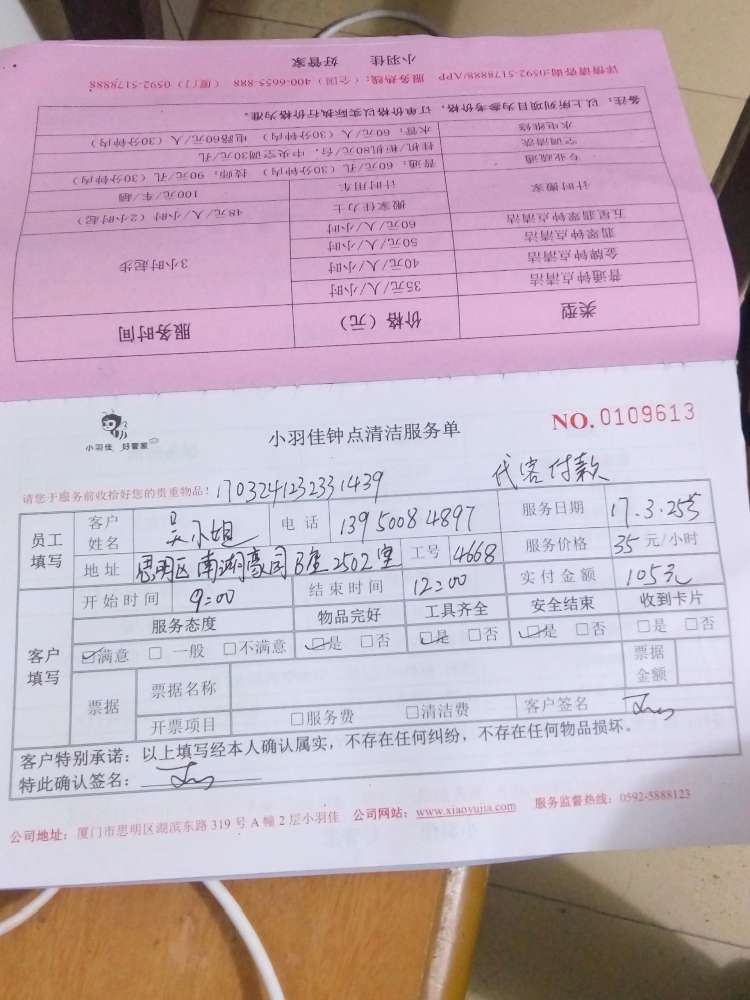 类型 价格（元） 服务时间
普通钟点清洁 35元/人/小时
金牌钟点清洁 40元/人/小时 3小时起步
翡翠钟点清洁 50元/人/小时
五星钟点清洁 60元/人/小时
计时搬家 搬家佳力士 48元/人/小时（2小时起）
计时用车 100元/车/辆
专业疏通 普通：60元/孔（30分钟内） 技师：90元/孔（30分钟内）
空调清洗 挂机/柜机80元/台，中央空调30元/孔
水电维修 水管：60元/人（30分钟内） 电路60元/人（30分钟内）
备注：以上所列项目为参考价格，订单价格以实际执行价格为准。
详情请咨询:0592-5178888/APP 服务热线：（全国）400-6655-888 （厦门）0592-5178888
小羽佳 好管家
小羽佳 好管家
小羽佳钟点清洁服务单
NO.0109613
请您于服务前收拾好您的贵重物品！
1703241232331439 代客付款
员工填写 客户姓名 吴小姐 电话 13950084897 服务日期 17.3.25
地址 思明区南湖豪园B座2502室 工号 4668 服务价格 35元/小时
客户填写 开始时间 9:00 结束时间 12:00 实付金额 105元
服务态度 物品完好 工具齐全 安全结束 收到卡片
☑满意 □一般 □不满意 ☑是 □否 ☑是 □否 ☑是 □否 □是 □否
票据 票据名称 票据金额
开票项目 □服务费 □清洁费 客户签名
客户特别承诺：以上填写经本人确认属实，不存在任何纠纷，不存在任何物品损坏。
特此确认签名：
公司地址：厦门市思明区湖滨东路319号A幢2层小羽佳 公司网站：www.xiaoyujia.com 服务监督热线：0592-5888123